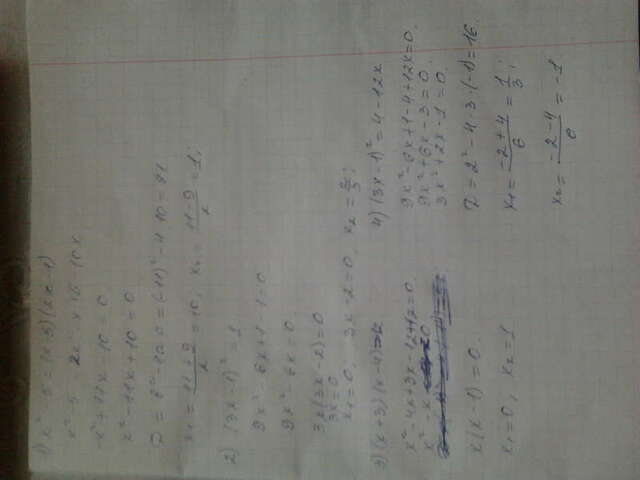 1) x² - 5 = (x-5)(2x-1)
x² - 5 = 2x² - x + 5 - 10x
-x² + 11x - 10 = 0
x² - 11x + 10 = 0
D = b² - 4ac = (-11)² - 4·10 = 81
x₁ = (11+9)/2 = 10; x₂ = (11-9)/2 = 1;
2) (3x-1)² = 1
9x² - 6x + 1 - 1 = 0
9x² - 6x = 0
3x(3x-2) = 0
3x = 0
x₁ = 0, 3x-2 = 0, x₂ = 2/3;
3) (x+3)(x-4) = -12
x² - 4x + 3x - 12 + 12 = 0
x² - x = 0
x(x-1) = 0.
x₁ = 0, x₂ = 1
4) (3x-1)² = 4 - 12x
9x² - 6x + 1 - 4 + 12x = 0.
9x² + 6x - 3 = 0.
3x² + 2x - 1 = 0.
D = 2² - 4·3·(-1) = 16.
x₁ = (-2+4)/6 = 1/3;
x₂ = (-2-4)/6 = -1